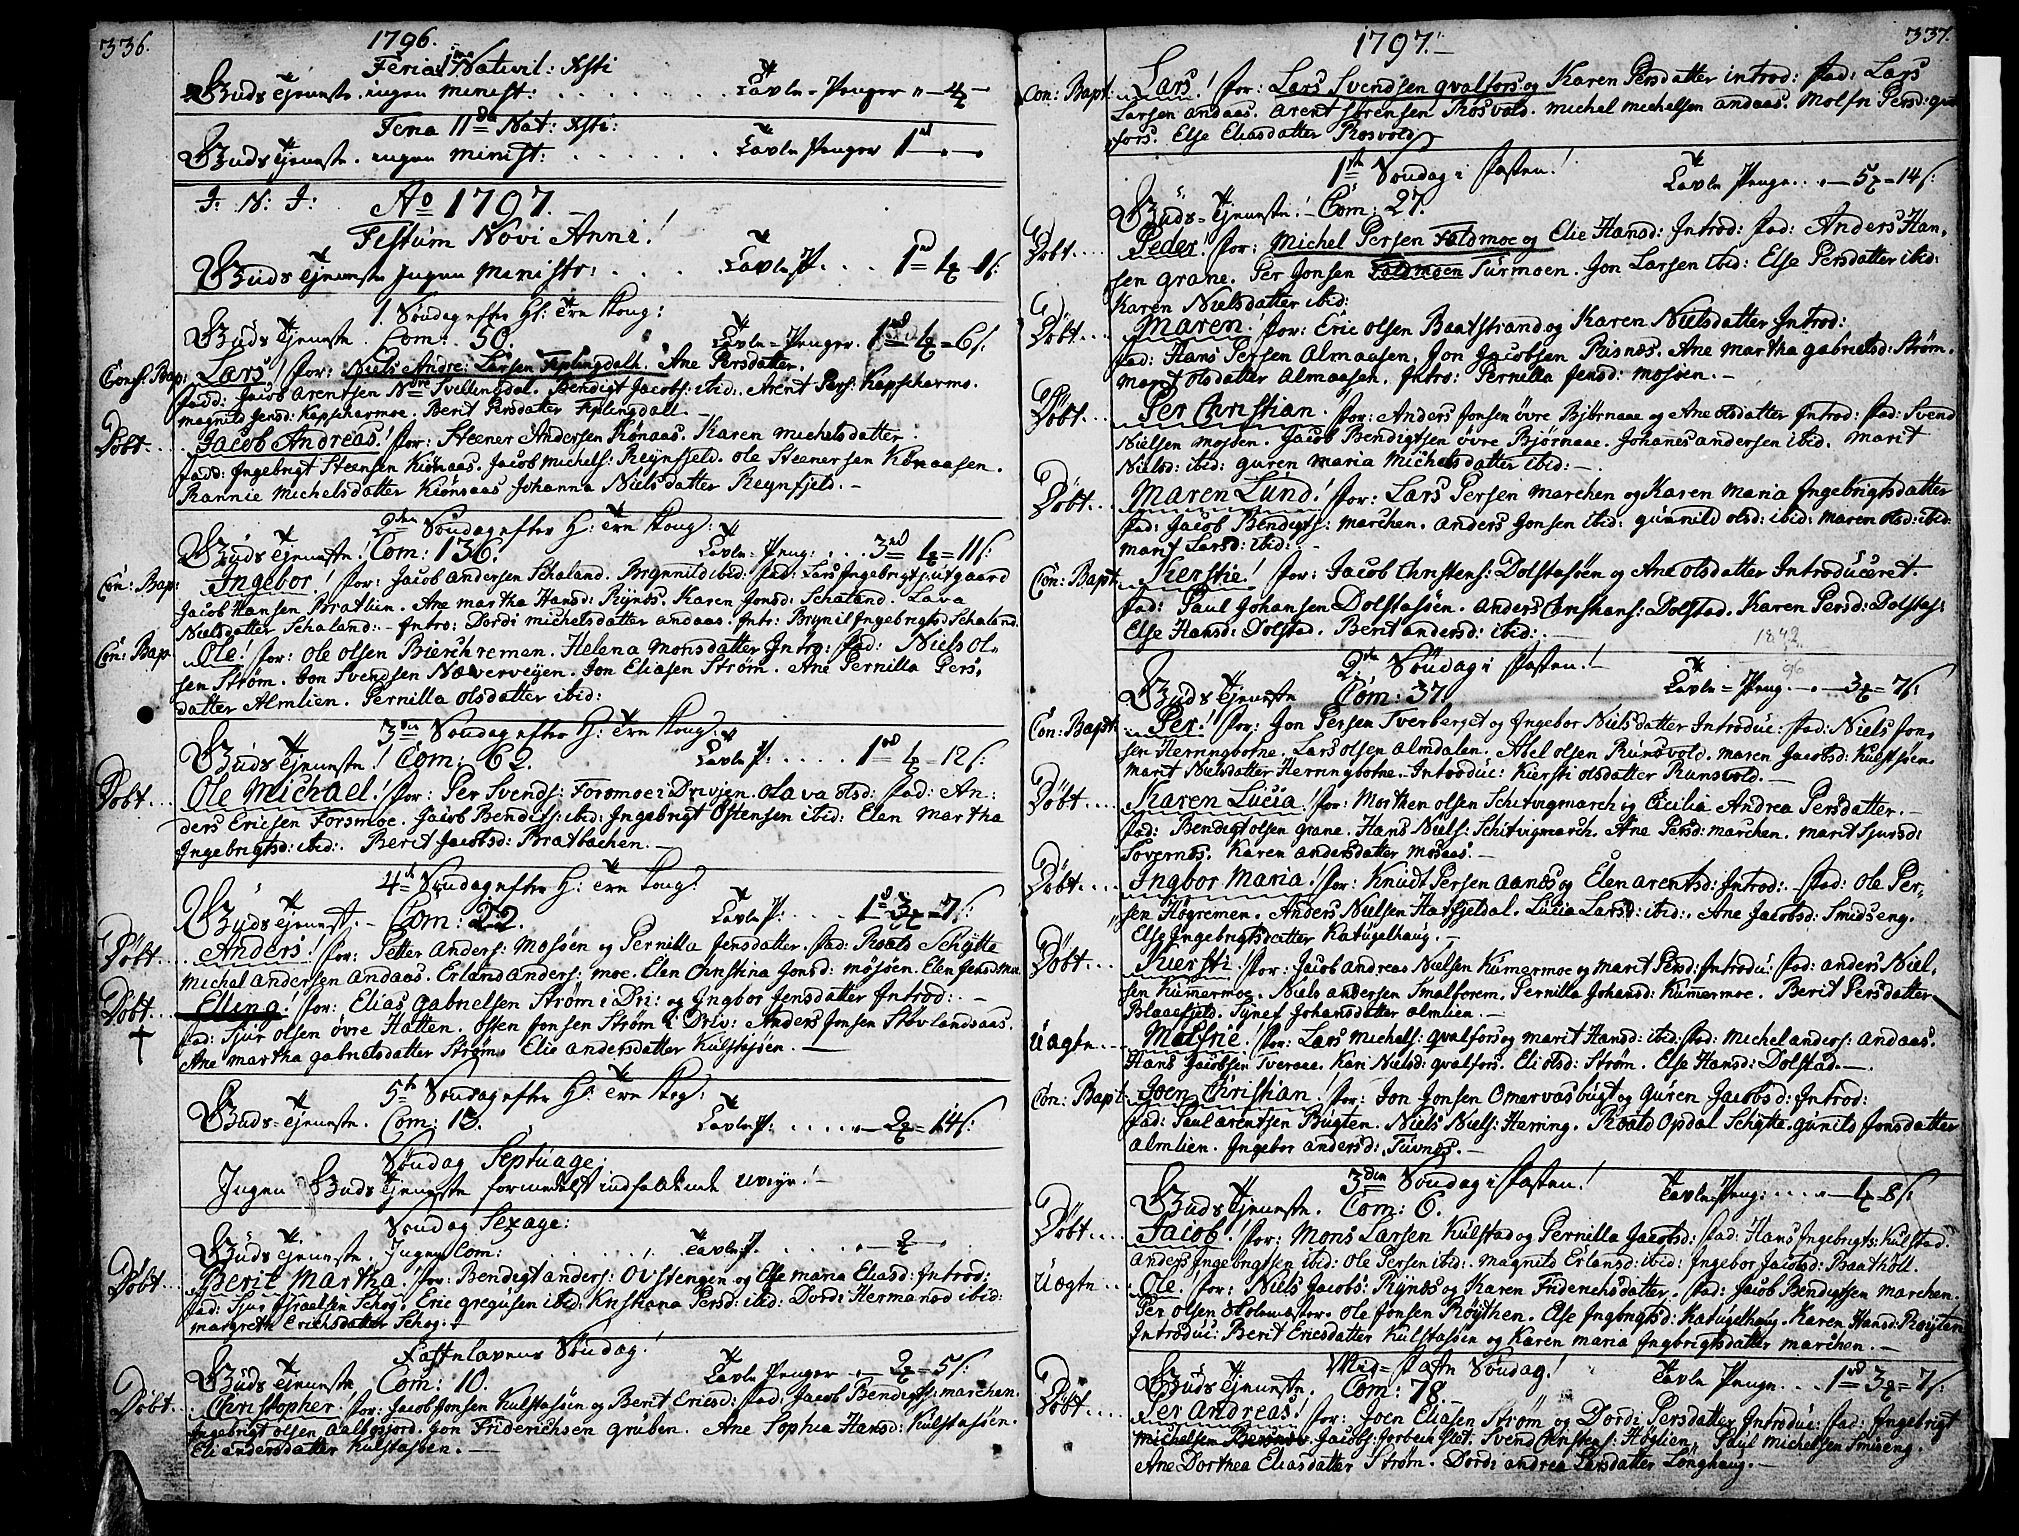 336.
1796.
Feria 1ma Nativit: Xsti
Guds Tjeneste. ingen minist: . . . . . . . Tavle-Penger " — 4 —
Feria 11da Nat: Xsti:
Guds Tjeneste. ingen minist: . . . . . . Tavle Penger 1
J: N: J: Ao 1797.
Festum Novi Anni!
Guds Tjeneste Ingen Ministr: . . . . Tavle P. . . .
1. Søndag efter H: Tre Kong:
Guds Tjeneste. Com: 50. Tavle-Penger.
Conf: Bap: Lars! for: Niels Andre: Larsen Fiplingdall. Ane Persdatter.
fadd: Jacob Arentsen Ndre Svenningdal. Bendigt Jacobs: ibid: Arent Pers: Kapskarmo.
magnild Jensd: Kapskarmoe. Berit Persdatter Fiplingdall. —
Døbt.... Jacob Andreas! for: Steener Andersen Kønaas. Karen michelsdatter.
fadd: Ingebrigt Steensen Kiønaas. Jacob Michels: Reynfjeld. Ole Steenersen Kønaasen.
Rannie Michelsdatter Kiønsaas Johanna Nielsdatter Reynfjeld. —
2den Søndag efter H: Tre Kong:
Guds Tjeneste. Com: 136. Tavle-Peng: . . .
Con: Bap: Ingebor! for: Jacob Andersen Schaland. Brynnild ibid: fad: Lars Ingebrigt
Jacob Hansen Bratlien. Ane martha Hansd: Rynes. Karen Jonsd: Schaland. Lava
Nielsdatter Schaland: — Intro: Dordi michelsdatter andaas. Intr: Brynil Ingebrigtsd Schaland.
Con: Bap. Ole! for: Ole olsen Bierchremen. Helena monsdatter Intro: fad: Niels Ol-
sen Strøm. Jon Svendsen Næverveyen. Jon Eliasen Strøm. Ane Pernilla Pers-
datter Almlien. Pernilla olsdatter ibid:
3die Søndag efter H: Tre Kong:
Guds Tjeneste! Com: 62. Tavle P: . . . . .
Døbt... Ole Michael! for: Per Svends: Forsmoe i Drivjen. Olava olsd: fad: An:
ders Ericsen Forsmoe. Jacob Bendits: ibid: Ingebrigt Ostensen ibid: Elen Martha
Ingebrigtsd: ibid: Berit Jacobsd: Bratbachen. —
4de Søndag efter H: Tre Kong:
Guds Tjenest: — Com: 22. Tavle P: . . . .
Døbt.... Anders! for: Petter Anders: Mosøen og Pernilla Jensdatter. fad: Roald Schytte
Michel Andersen Andaas. Erland Anders: moe. Elen Christina Jonsd: mosøen. Elen Jensd
Døbt... Elling! for: Elias Gabrielsen Strøm i Dri: og Ingbor Jensdatter Introd: —
† fad: Sjur olsen øvre Hatten. Osten Jonsen Strøm i Driv: Anders Jonsen Støvlandsaas.
Ane martha gabrielsdatter Strøm. Elie Andersdatter Kulstasøen. —
5te Søndag efter H: Tre Kog:
Guds Tjeneste. Com: 13. Tavle P: . . . . .
Søndag Septuage:
Ingen Guds Tjeneste formedelst indfaldende uveyr! —
Søndag Sexage:
Guds Tjeneste. Ingen Com: . . . . . . Tavle P.
Døbt... Berit Martha. for: Bendigt anders: Ovstengen og Else maria Eliasd: Introd:
fad: Sjur Israelsen Schog. Eric gregusen ibid: Kristiana Persd: ibid: Dordi Hermansd ibid:
margrete Erichsdatter Schog. —
Fastelavens Søndag!
Guds Tjeneste Com: 10. Tavle Penger
Døbt... Christopher! for: Jacob Jonsen Kulstasøen og Berit Ericsd: fad: Jacob Bendigts: marchen.
Ingebrigt olsen Aalgsfiord. Jon Friderichsen Gruben. Ane Sophia Hansd: Kulstasøen.
Eli andersdatter Kulstasøen. —
1797.—
337.
Con: Bapt: Lars! for: Lars Svendsen qvalfors og Karen Persdatter introd: fad: Lars
Larsen andaas. Arent Sørensen Rosvold. Michel michelsen andaas. Molfri Persd: qval
fors. Else Eliasdatter Rosvold
1ste Søndag i Fasten!
Guds-Tjeneste! — Com: 27. Tavle Penge . . — 5 = 14
Døbt.... Peder! for: Michel Persen Foldmoe og Elie Hansd: Introd: fad: Anders Han,
sen grane. Per Jonsen Foldmoen Turmoen. Jon Larsen ibid: Else Persdatter ibid:
Karen Nielsdatter ibid:
Døbt... Maren! for: Eric olsen Baatstrand og Karen Nielsdatter Introd:
fad: Hans Persen Almaasen, Jon Jacobsen Risnes. Ane martha gabrielsd: Strøm.
Marit olsdatter Almaasen. Intro: Pernilla Jensd: mosøen. —
Døbt... Per Christian. for: Anders Jonsen øvre Bjørnaae og Ane olsdatter Introd: fad: Svend
Nielsen mosøen. Jacob Bendigtsen øvre Bjørnaae. Johanes andersen ibid. Marit
Nielsd: ibid: guren maria Michelsdatter ibid: —
Døbt... Maren Lund! for: Lars Persen marchen og Karen maria Ingebrigtsdatter
fad: Jacob Bendigts: marchen. Anders Jonsen ibid: gunnild olsd: ibid: maren olsd: ibid:
marit Larsd: ibid: —
Con: Bapt: Kierstie! for: Jacob Christens: Dolstasøen og Ane olsdatter Introduceret.
fad: Paul Johansen Dolstasøen. Anders Christians: Dolstad. Karen Persd: Dolstas:
Else Hansd: Dolstad. Berit andersd: ibid: . —
1842
96
2den Søndag i Fasten! —
Guds Tjeneste Com: 37. Tavle-Peng . — 3 = 7
Con: Bapt: Per! for: Jon Persen Tverberget og Ingebor Nielsdatter Introduc: fad: Niels Jon,
sen Herringbotne. Lars olsen Almdalen. Abel olsen Runsvold. maren Jacobsd: Kulstsøen.
Marit Nielsdatter Herringbotne. Introduc: Kiersti olsdatter Runsvold. —
Døbt.... Karen Lucia. for: Morten olsen Schitvigmarch og Cicilia Andrea Persdatter.
fad: Bendigt olsen grane. Hans Niels: Schitvigmarch. Ane Persd: marchen. marit Sjursd:
Sovernes. Karen andersdatter Mosaas. —
Døbt.... Ingbor Maria! for: Knudt Persen Aanes og Elen Arentsd: Introd: fad: Ole Per-
sen Høgremen. Anders Nielsen Hatfjeldal. Lucia Larsd: ibid: Ane Jacobsd: Smidseng.
Else Ingebrigtsdatter Katugelhaug. —
Døbt.... Kiersti for: Jacob Andreas Nielsen Kummermoe og Marit Persd: Introdu: fad: anders Niel,
sen Kummermoe. Niels andersen Smalforem. Pernilla Johansd: Kummermoe. Berit Persdatter
Blaaefjeld. Synev Johansdatter almlien. —
Uægte... Molfrie! for: Lars Michels: qvalfors og marit Hansd: ibid: fad: Michel anders: Andaas.
Hans Jacobsen Tveraae. Kari Nielsd: qvalfors. Eli olsd: Strøm. Else Hansd: Dolstad. —
Con: Bapt: Joen Christian! for: Jon Jonsen Omervasbugt og Guren Jacobsd: Introd:
fad: Paul Arentsen Bugten. Niels Niels: Herring. Roald Opdal Schytte. gunild Jonsdatter
almlien. Ingebor andersd: Tuvnes. —
3die Søndag i Fasten!
Guds Tjeneste. Com: 6. Tavle-Peng: . . . . — 4 = 8
Døbt.... Jacob! for: Mons Larsen Kulstad og Pernilla Jacobsd: fad: Hans Ingebrigts: Kulstad.
Anders Ingebrigtsen ibid: Ole Persen ibid: Magnild Erlansd: ibid: Ingebor Jacobsd: Baatholl.
Uægte ... Ole! for: Niels Jacobs: Rynes og Karen Friderichsdatter. fad: Jacob Bendigtsen marchen.
Per olsen Holandsfor. Ole Jonsen Røythen. Else Ingebrigtsd: Katugelhaug. Karen Hansd: Røyten
Introduc: Berit Ericsdatter Kulstasøen og Karen maria Ingebrigtsdatter marchen. —
Mid-Faste Søndag!
Guds Tjeneste. Com: 78. Tavle Penge . .
Døbt.... Per Andreas! for: Joen Eliasen Strøm og Dordi Persdatter Introduc: fad: Ingebrigt
Michelsen Jacobs: Svend Christens: Høglien, Paul Michelsen Smiseng.
Ane Dorthea Eliasdatter Strøm. Dordi andrea Larsdatter Longhaug. —